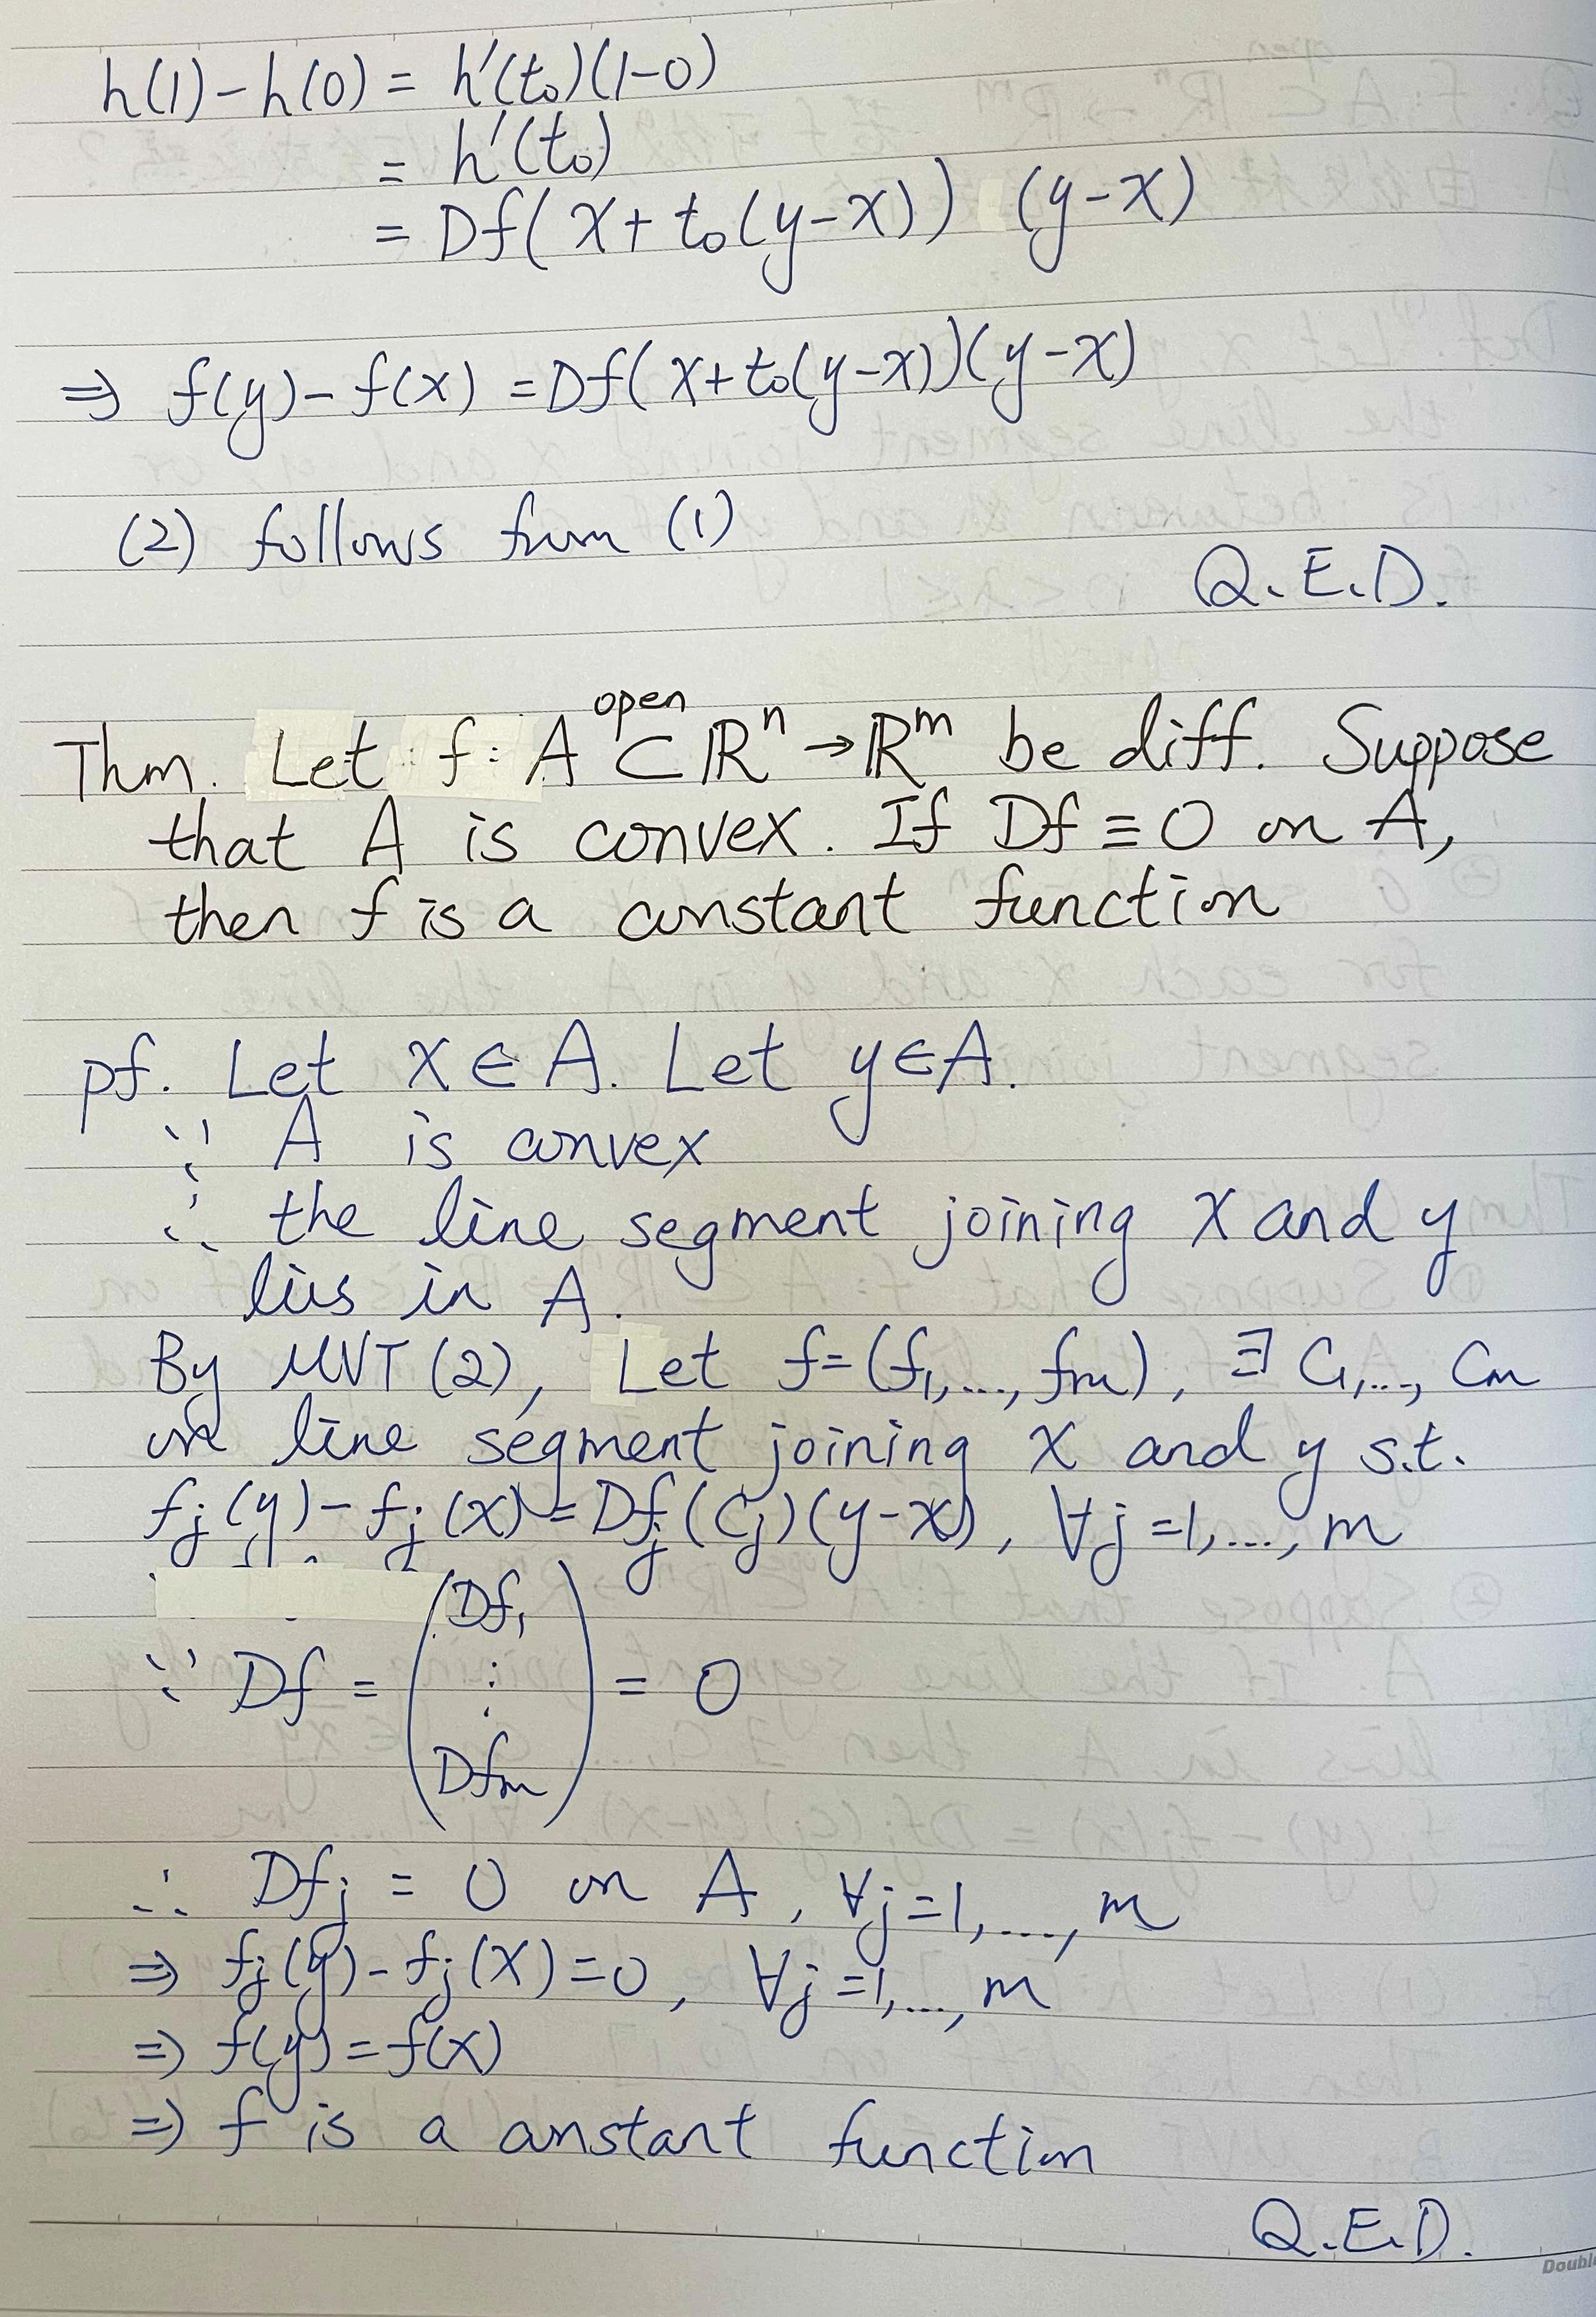 h(1)-h(0) = h'(t₀)(1-0)
= h'(t₀)
= Df(x+t₀(y-x)) (y-x)
⇒ f(y)-f(x) = Df(x+t₀(y-x))(y-x)
(2) follows from (1)
Q.E.D.
open
Thm. Let f: A ⊂ ℝⁿ → ℝᵐ be diff. Suppose
that A is convex. If Df ≡ 0 on A,
then f is a constant function
pf. Let x ∈ A. Let y ∈ A.
∵ A is convex
∴ the line segment joining x and y
lies in A.
By MVT (2), Let f=(f₁,..., fₘ), ∃ C₁,..., Cₘ
on line segment joining x and y s.t.
fⱼ(y)-fⱼ(x)=Dfⱼ(Cⱼ)(y-x), ∀j=1,..., m
∵ Df = (Df₁ ⋮ Dfₘ) = 0
∴ Dfⱼ = 0 on A, ∀j=1,..., m
⇒ fⱼ(y)-fⱼ(x)=0, ∀j=1,..., m
⇒ f(y)=f(x)
⇒ f is a constant function
Q.E.D.